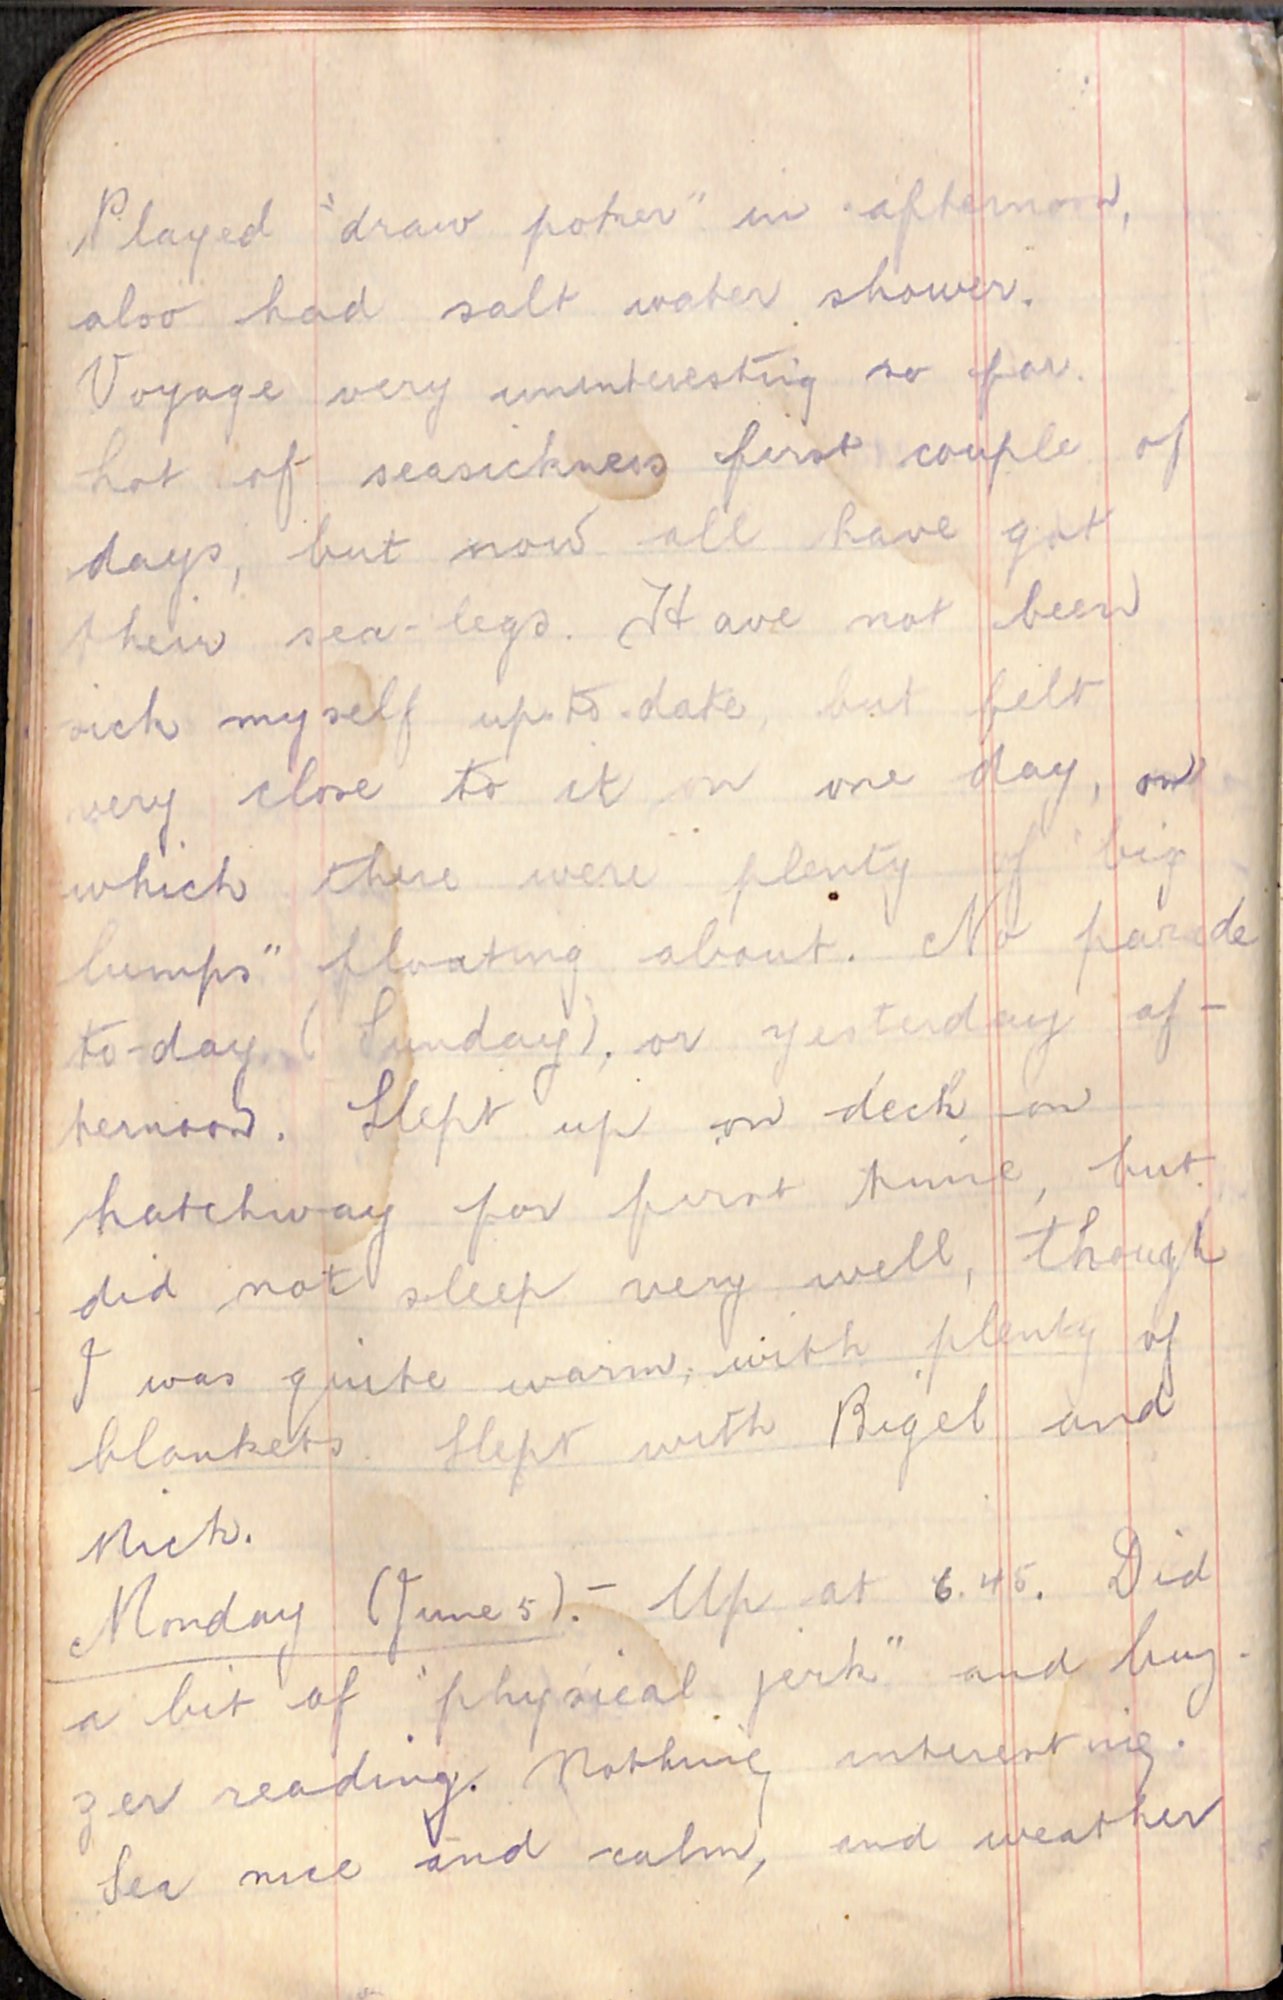 Played "draw poker" in afternoon,
also had salt water shower.
Voyage very uninteresting so far.
Lot of seasickness first couple of
days, but now all have got
their sea-legs. Have not been
sick myself up-to-date, but felt
very close to it on one day, on
which there were plenty of "big
lumps" floating about. No parade
to-day (Sunday), or yesterday af-
ternoon. Slept up on deck on
hatchway for first time, but
did not sleep very well, though
I was quite warm, with plenty of
blankets. Slept with Rigel and
Nick.
Monday (June 5).- Up at 6.45. Did
a bit of "physical jerk" and buz-
zer reading. Nothing interesting.
Sea nice and calm, and weather